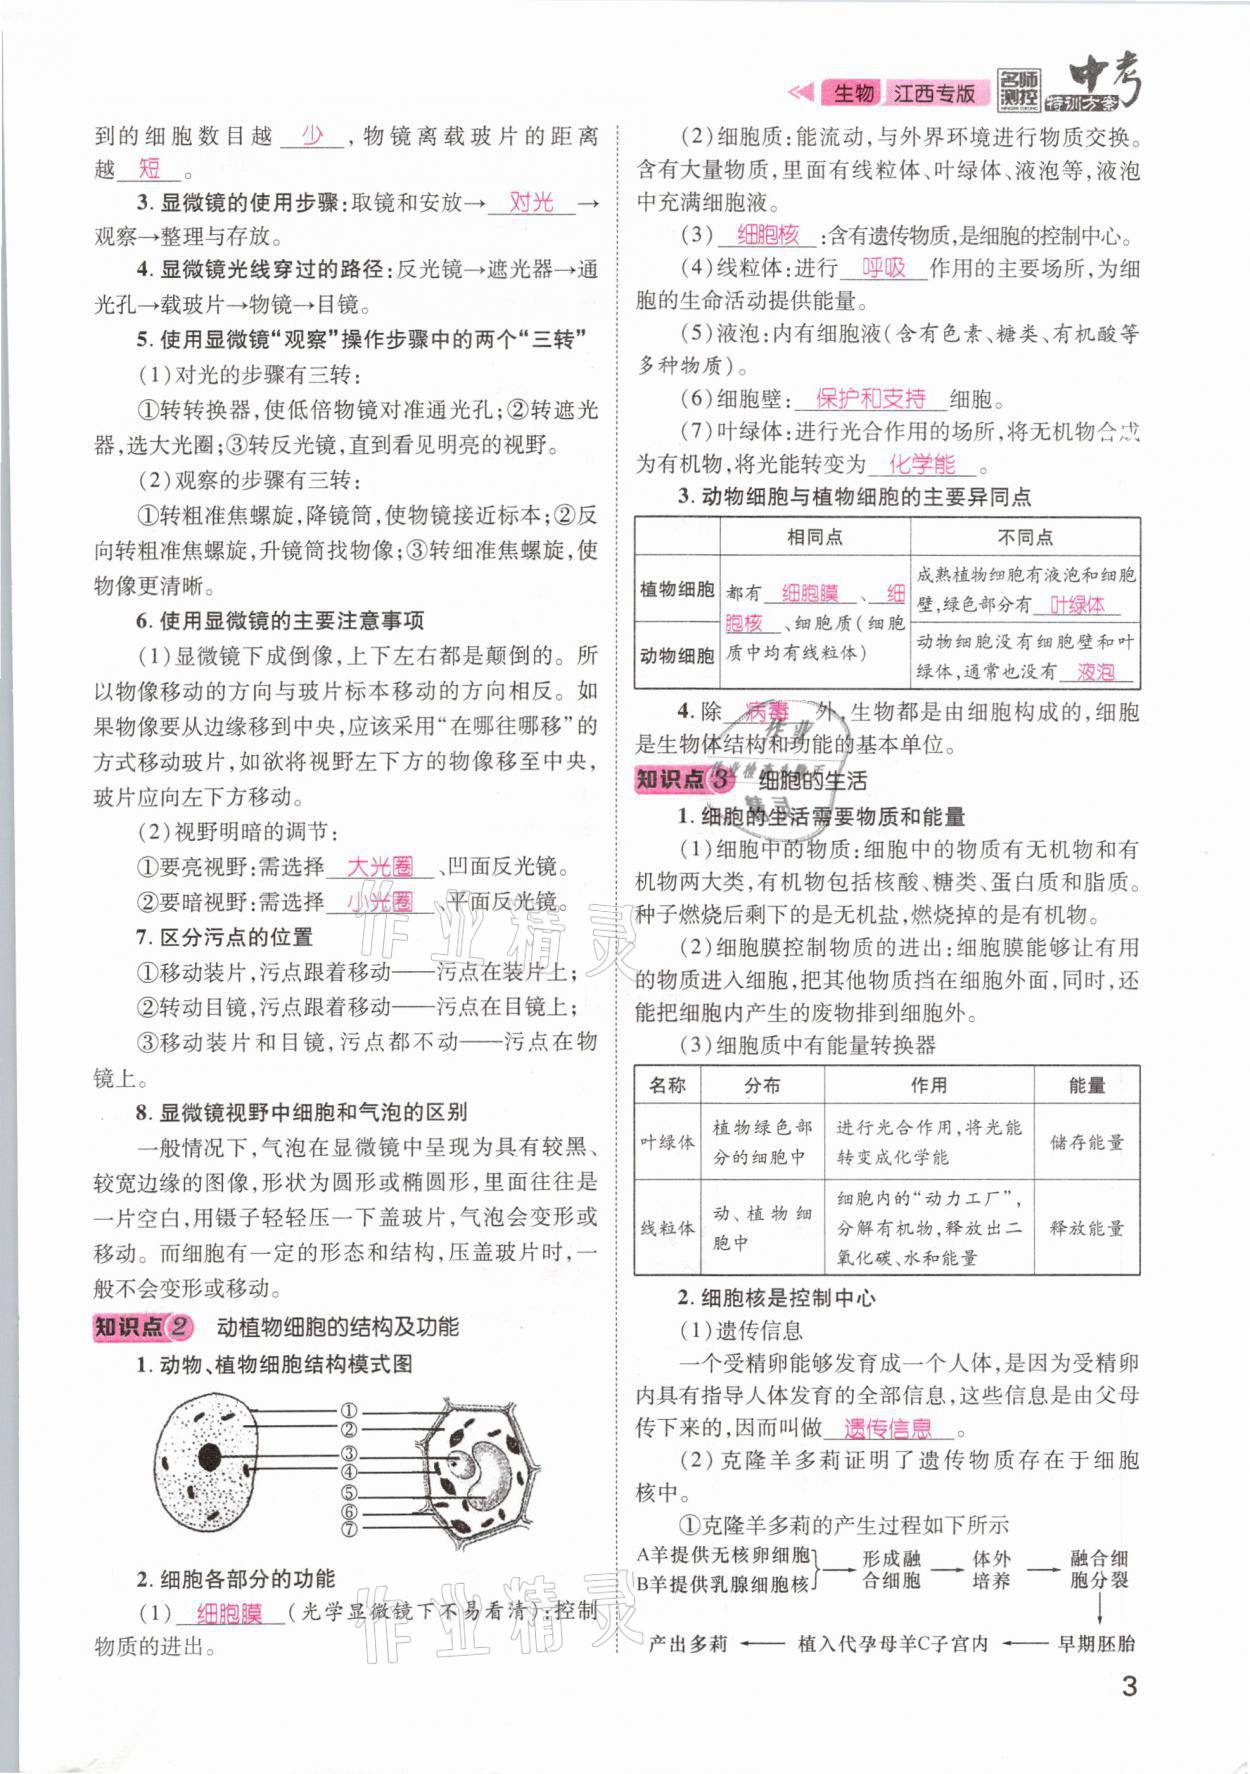 生物 江西专版 名师测控 中考 特训方案
到的细胞数目越 少 ,物镜离载玻片的距离
越 短 。
3. 显微镜的使用步骤:取镜和安放→ 对光 →
观察→整理与存放。
4. 显微镜光线穿过的路径:反光镜→遮光器→通
光孔→载玻片→物镜→目镜。
5. 使用显微镜“观察”操作步骤中的两个“三转”
(1)对光的步骤有三转:
①转转换器,使低倍物镜对准通光孔;②转遮光
器,选大光圈;③转反光镜,直到看见明亮的视野。
(2)观察的步骤有三转:
①转粗准焦螺旋,降镜筒,使物镜接近标本;②反
向转粗准焦螺旋,升镜筒找物像;③转细准焦螺旋,使
物像更清晰。
6. 使用显微镜的主要注意事项
(1)显微镜下成倒像,上下左右都是颠倒的。所
以物像移动的方向与玻片标本移动的方向相反。如
果物像要从边缘移到中央,应该采用“在哪往哪移”的
方式移动玻片,如欲将视野左下方的物像移至中央,
玻片应向左下方移动。
(2)视野明暗的调节:
①要亮视野:需选择 大光圈 、凹面反光镜。
②要暗视野:需选择 小光圈 、平面反光镜。
7. 区分污点的位置
①移动装片,污点跟着移动——污点在装片上;
②转动目镜,污点跟着移动——污点在目镜上;
③移动装片和目镜,污点都不动——污点在物
镜上。
8. 显微镜视野中细胞和气泡的区别
一般情况下,气泡在显微镜中呈现为具有较黑、
较宽边缘的图像,形状为圆形或椭圆形,里面往往是
一片空白,用镊子轻轻压一下盖玻片,气泡会变形或
移动。而细胞有一定的形态和结构,压盖玻片时,一
般不会变形或移动。
知识点2 动植物细胞的结构及功能
1. 动物、植物细胞结构模式图
①
②
③
④
⑤
⑥
⑦
2. 细胞各部分的功能
(1) 细胞膜 (光学显微镜下不易看清):控制
物质的进出。
(2)细胞质:能流动,与外界环境进行物质交换。
含有大量物质,里面有线粒体、叶绿体、液泡等,液泡
中充满细胞液。
(3) 细胞核 :含有遗传物质,是细胞的控制中心。
(4)线粒体:进行 呼吸 作用的主要场所,为细
胞的生命活动提供能量。
(5)液泡:内有细胞液(含有色素、糖类、有机酸等
多种物质)。
(6)细胞壁: 保护和支持 细胞。
(7)叶绿体:进行光合作用的场所,将无机物合成
为有机物,将光能转变为 化学能 。
3. 动物细胞与植物细胞的主要异同点
相同点 不同点
植物细胞 都有 细胞膜 、 细胞核 、细胞质(细胞质中均有线粒体) 成熟植物细胞有液泡和细胞壁,绿色部分有 叶绿体
动物细胞 动物细胞没有细胞壁和叶绿体,通常也没有 液泡
4. 除 病毒 外,生物都是由细胞构成的,细胞
是生物体结构和功能的基本单位。
知识点3 细胞的生活
1. 细胞的生活需要物质和能量
(1)细胞中的物质:细胞中的物质有无机物和有
机物两大类,有机物包括核酸、糖类、蛋白质和脂质。
种子燃烧后剩下的是无机盐,燃烧掉的是有机物。
(2)细胞膜控制物质的进出:细胞膜能够让有用
的物质进入细胞,把其他物质挡在细胞外面,同时,还
能把细胞内产生的废物排到细胞外。
(3)细胞质中有能量转换器
名称 分布 作用 能量
叶绿体 植物绿色部分的细胞中 进行光合作用,将光能转变成化学能 储存能量
线粒体 动、植物细胞中 细胞内的“动力工厂”,分解有机物,释放出二氧化碳、水和能量 释放能量
2. 细胞核是控制中心
(1)遗传信息
一个受精卵能够发育成一个人体,是因为受精卵
内具有指导人体发育的全部信息,这些信息是由父母
传下来的,因而叫做 遗传信息 。
(2)克隆羊多莉证明了遗传物质存在于细胞
核中。
①克隆羊多莉的产生过程如下所示
A羊提供无核卵细胞
B羊提供乳腺细胞核
→ 形成融合细胞 → 体外培养 → 融合细胞分裂
↓
产出多莉 ← 植入代孕母羊C子宫内 ← 早期胚胎
3
作业精灵
作业精灵